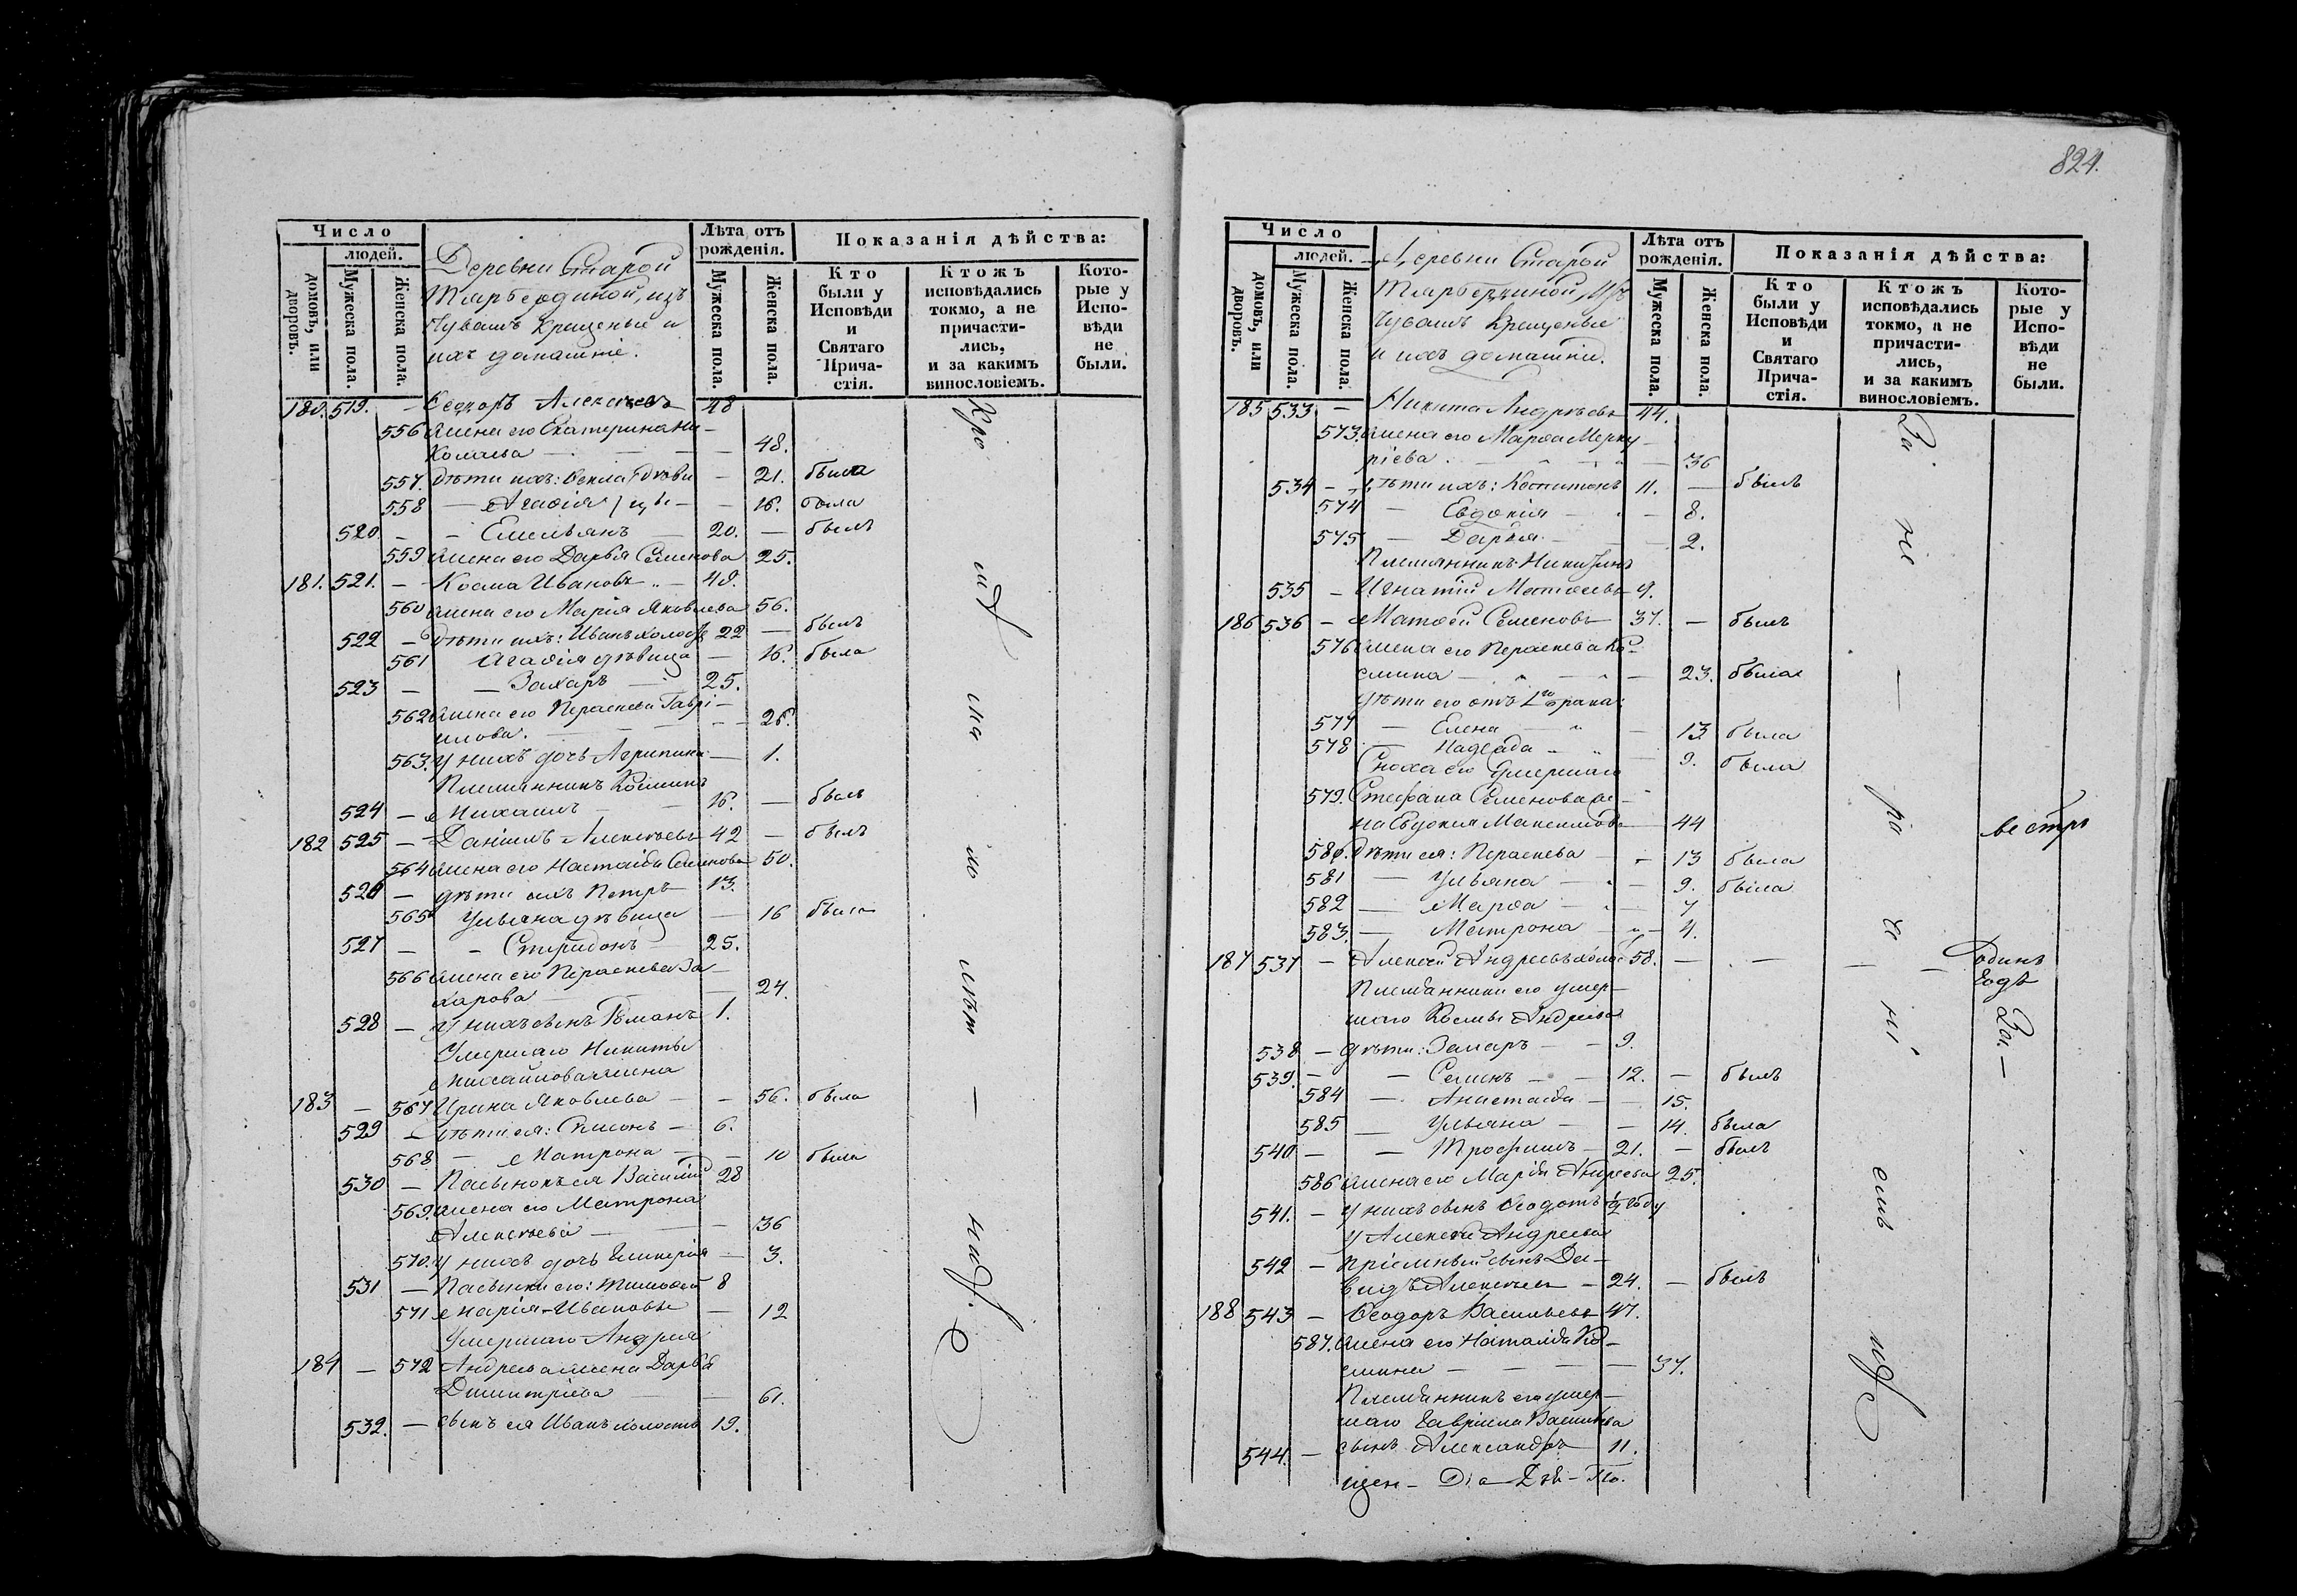 Число
людей.
домовъ, или дворовъ.
Мужеска пола.
Женска пола.
Деревни Старой
Тярбердиной, изъ
Чувашъ крещеные и
ихъ домашніе.
Лѣта отъ рожденія.
Мужеска пола.
Женска пола.
Показанія дѣйства:
Кто были у Исповѣди и Святаго Прича-стія.
Ктожъ исповѣдались токмо, а не причасти-лись, и за какимъ винословіемъ.
Кото-рые у Испо-вѣди не были.
180. 519. — Ѳедоръ Алексѣевъ 48
556 жена его Екатерина Ни-
колаева — 48.
557. дѣти ихъ: Ѳекла — 21. была
558 — Агаѳія — 16. была
520. — Емельянъ 20. — былъ
559 жена его Дарья Семенова 25.
181. 521. — Косма Ивановъ — 48.
560 жена его Марія Яковлева 56.
522 — дѣти ихъ: Иванъ холостъ 22 — былъ
561 Агаѳія дѣвица — 16. была
523 — Захаръ — 25.
562 жена его Параскева Гаврі-
илова. — 26.
563. у нихъ дочь Агрипина — 1.
Племянникъ Косминъ
524 — Михаилъ — 16. — былъ
182 525 — Даніилъ Алексѣевъ 42 — былъ
564 жена его Настасія Семенова 50.
526 — дѣти ихъ Петръ — 13.
565 Ульяна дѣвица — 16 была
527 — Спиридонъ — 25.
566 жена его Параскева За-
харова — 24.
528 — у нихъ сынъ Романъ 1.
Умершаго Никиты
Михайлова жена
183 — 567 Ирина Яковлева — 56. была
529 — дѣти ея: Симонъ — 6.
568 — Матрона — 10 была
530 — Пасынокъ ея Василій 28
569. жена его Матрона
Алексѣева — 36
570. у нихъ дочь Гликерія — 3.
531 — Пасынки его: Тимоѳей 8
571 Марія Ивановы — 12
Умершаго Андрея
184 — 572 Андреева жена Дарья
Димитріева — 61.
532. — сынъ ея Иванъ холостъ 19.
Кро мѣ ма ло лѣт — нихъ.
824.
Число
людей.
домовъ, или дворовъ.
Мужеска пола.
Женска пола.
Деревни Старой
Тярбердиной, изъ
Чувашъ крещеные
и ихъ домашніе.
Лѣта отъ рожденія.
Мужеска пола.
Женска пола.
Показанія дѣйства:
Кто были у Исповѣди и Святаго Прича-стія.
Ктожъ исповѣдались токмо, а не причасти-лись, и за какимъ винословіемъ.
Кото-рые у Испо-вѣди не были.
185 533 — Никита Андреевъ 44.
573. жена его Марѳа Мерку-
ріева. — 36
534 — дѣти ихъ: Капитонъ 11. — былъ
574 — Евдокія — 8.
575 — Дарья — 2.
Племянникъ Никитинъ
535 — Игнатій Матѳеевъ 9.
186 536 — Матѳей Семеновъ 37. — былъ
576 жена его Параскева Ко-
смина — 23. была
дѣти его отъ 1го брака:
577 — Елена — 13 была
578 — Надежда — 9. была
Сноха его умершаго
579. Стефана Семенова же-
на Евдокія Максимова — 44
580. дѣти ея: Параскева — 13 была
581 — Ульяна — 9. была
582 — Марѳа — 7
583. — Матрона — 4.
187 537 — Алексѣй Андреевъ холос 58. — — — — одинъ
годъ
Племянники его умер-
шаго Космы Андреева
538 — дѣти: Захаръ — 9.
539. — Семенъ — 12. — былъ
584 — Анастасія — 15.
585 — Ульяна — 14. была
540 — Трофимъ — 21. — былъ
586 жена его Марія Андреева 25.
541. — у нихъ сынъ Ѳеодотъ ½ году
у Алексѣя Андреева
542 — пріемный сынъ Да-
видъ Алексѣевъ — 24. — былъ
188 543 — Ѳеодоръ Васильевъ 47.
587. жена его Наталія Ко-
смина — 37.
Племянникъ его умер-
шаго Гавріила Васильева
544. — сынъ Александръ 11.